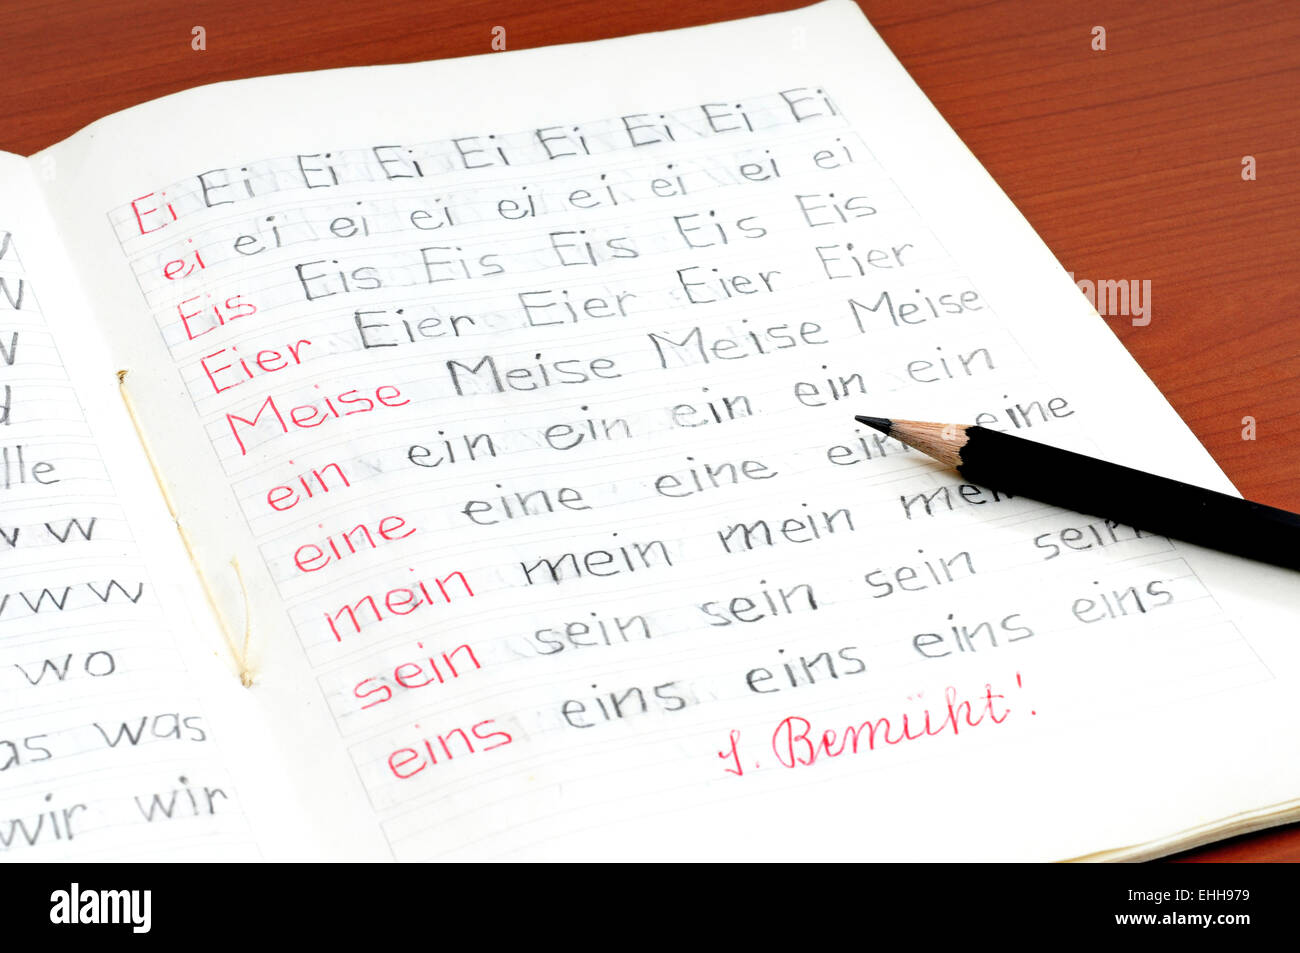 w
w
w
d
lle
w w
w w w
wo
as was
wir wir
Ei Ei Ei Ei Ei Ei Ei Ei Ei
ei ei ei ei ei ei ei ei ei
Eis Eis Eis Eis Eis Eis
Eier Eier Eier Eier Eier
Meise Meise Meise Meise
ein ein ein ein ein ein
eine eine eine eine eine
mein mein mein mein
sein sein sein sein sein
eins eins eins eins eins
Bemüht!
a
a
a
a
alamy
alamy
Image ID: EHH979
www.alamy.com